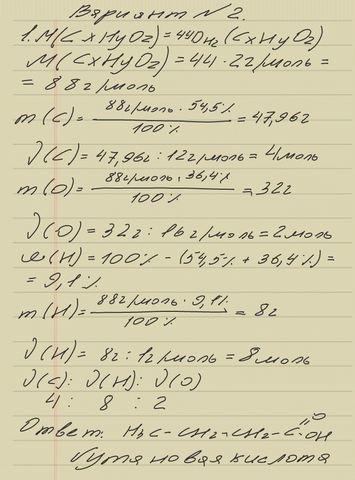 Вариант №2.
1. M(CxHyOz) = 44D H2 (CxHyOz)
M(CxHyOz) = 44 · 2г/моль =
= 88г/моль
m(C) = 88г/моль · 54,5% / 100% = 47,96г
ν(C) = 47,96г : 12г/моль = 4моль
m(O) = 88г/моль · 36,4% / 100% = 32г
ν(O) = 32г : 16г/моль = 2моль
ω(H) = 100% - (54,5% + 36,4%) =
= 9,1%
m(H) = 88г/моль · 9,1% / 100% = 8г
ν(H) = 8г : 1г/моль = 8моль
ν(C) : ν(H) : ν(O)
4 : 8 : 2
Ответ: H3C-CH2-CH2-C=O OH
кислота